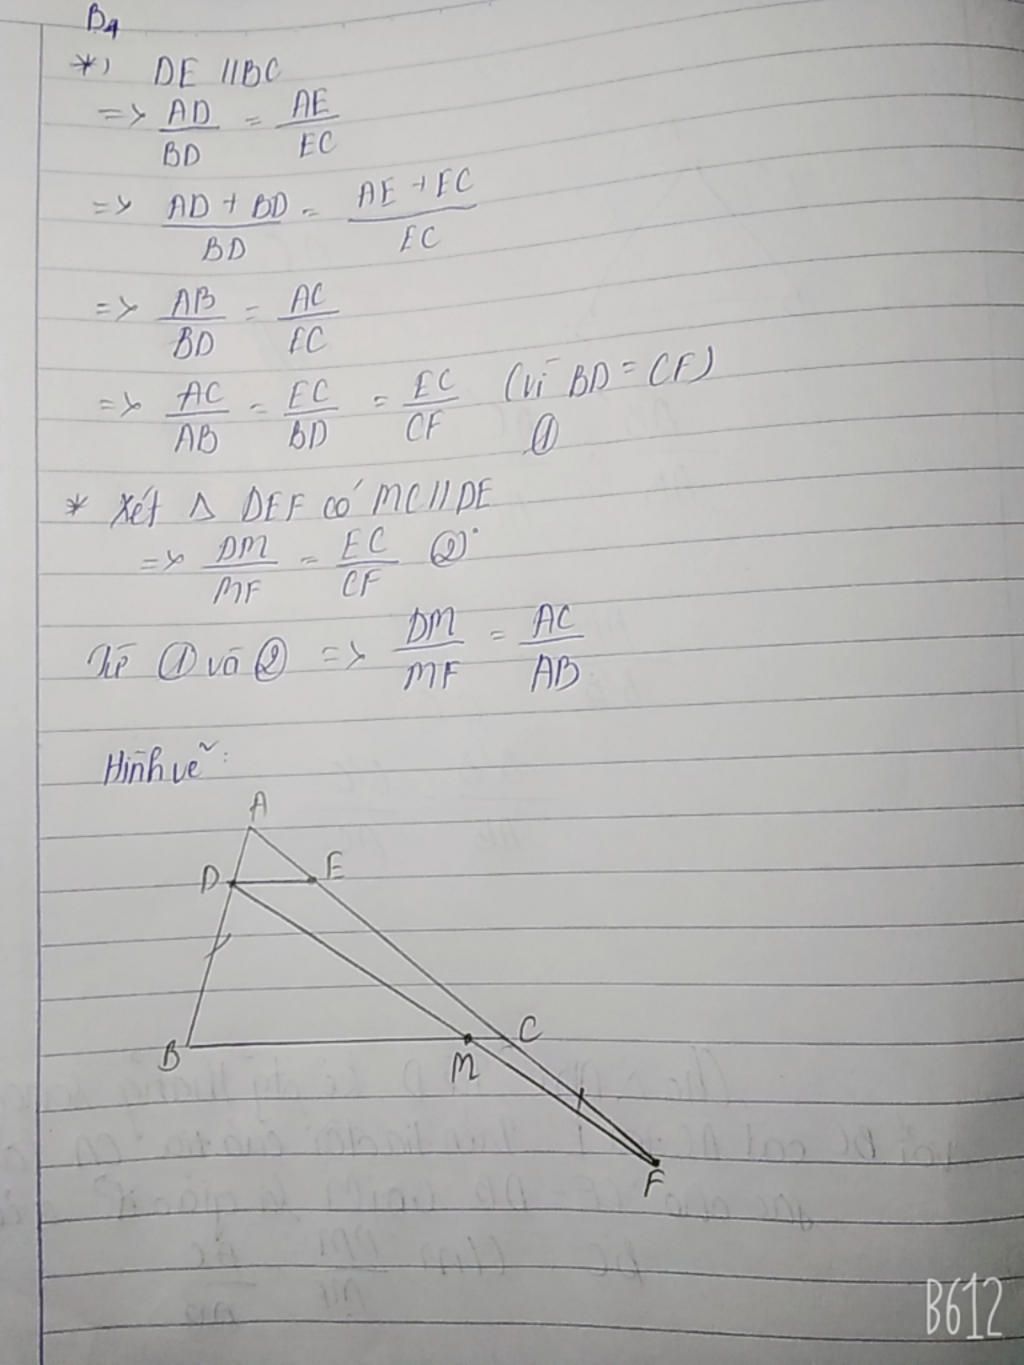 B4
*) DE // BC
=> AD/BD = AE/EC
=> AD + BD/BD = AE + EC/EC
=> AB/BD = AC/EC
=> AC/AB = EC/BD = EC/CF (vì BD = CF)
①
* Xét Δ DEF có MC // DE
=> DM/MF = EC/CF ②
Từ ① và ② => DM/MF = AC/AB
Hình vẽ:
A
D E
B M C
F
B612